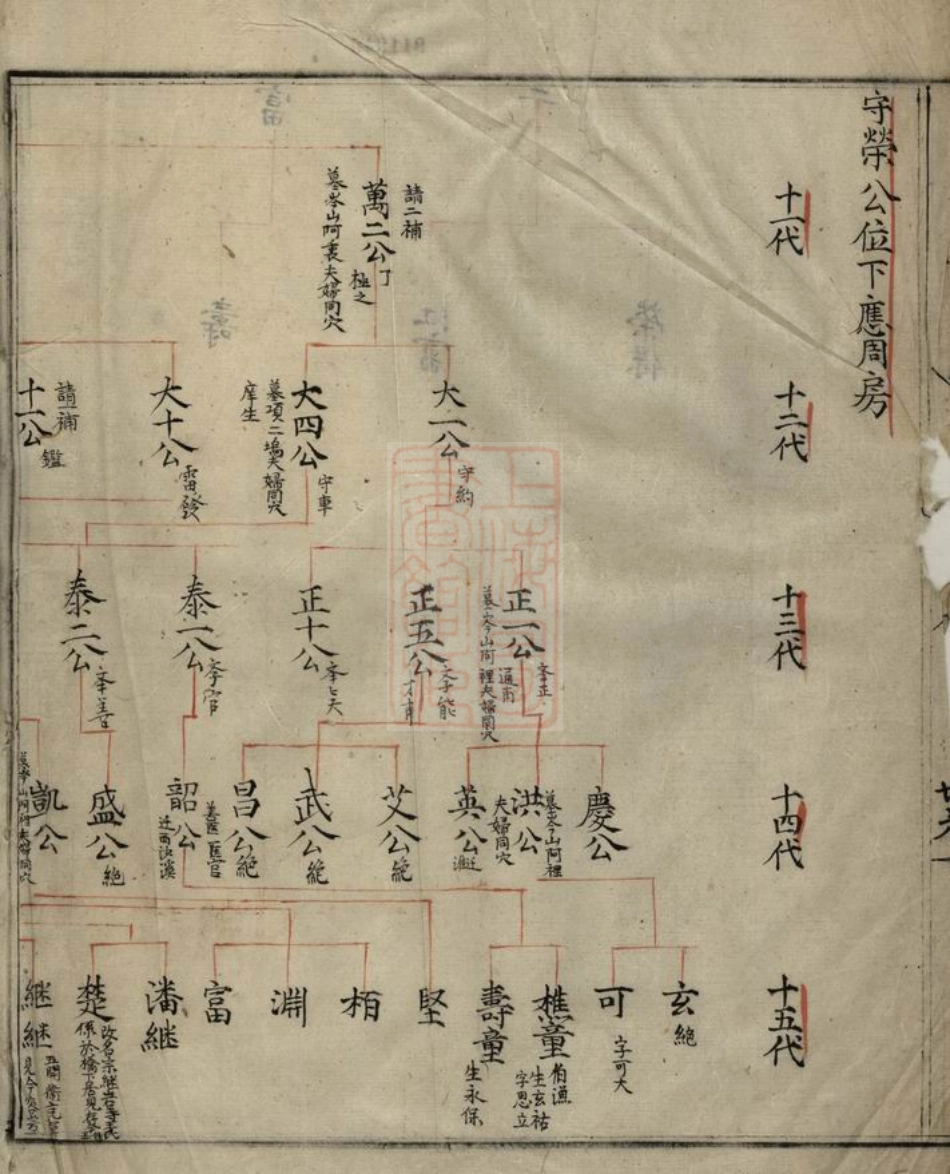 守榮公位下應周房
十一代
請二補
萬二公
丁
極之
墓岑山阿裏夫婦同穴
十二代
大一公
守約
大四公
守車
墓項二塢夫婦同穴
庠生
大十公
雷發
請一補
十一公
鑑
十三代
正一公
孝正
通甫
墓岑山阿裡夫婦同穴
正五公
孝能
正十公
孝七天
泰一公
孝官
泰二公
孝善
十四代
慶公
洪公
墓岑山阿裡
夫婦同穴
英公
艾公
絶
武公
絶
昌公
絶
善医医官
韶公
盛公
絶
凱公
墓岑山阿裡夫婦同穴
十五代
玄
絶
可
字可大
樵童
伯漁
生玄祐
字思立
壽童
生永保
堅
栢
淵
富
潘継
楚
継継